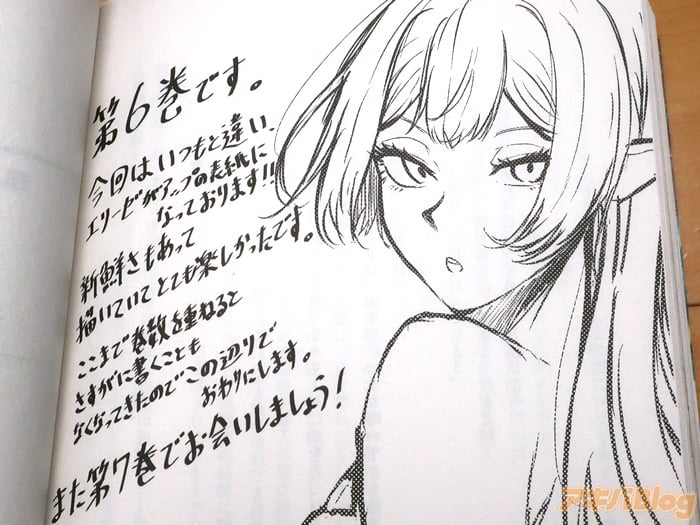 第6巻です。
今回はいつもと違い、
エリービがアップの表紙に
なっております!!
新鮮さもあって
描いていてとても楽しかったです。
ここまで巻数を重ねると
さすがに書くことも
なくなってきたのでこの辺りで
おわりにします。
また第7巻でお会いしましょう!
アキバBlog